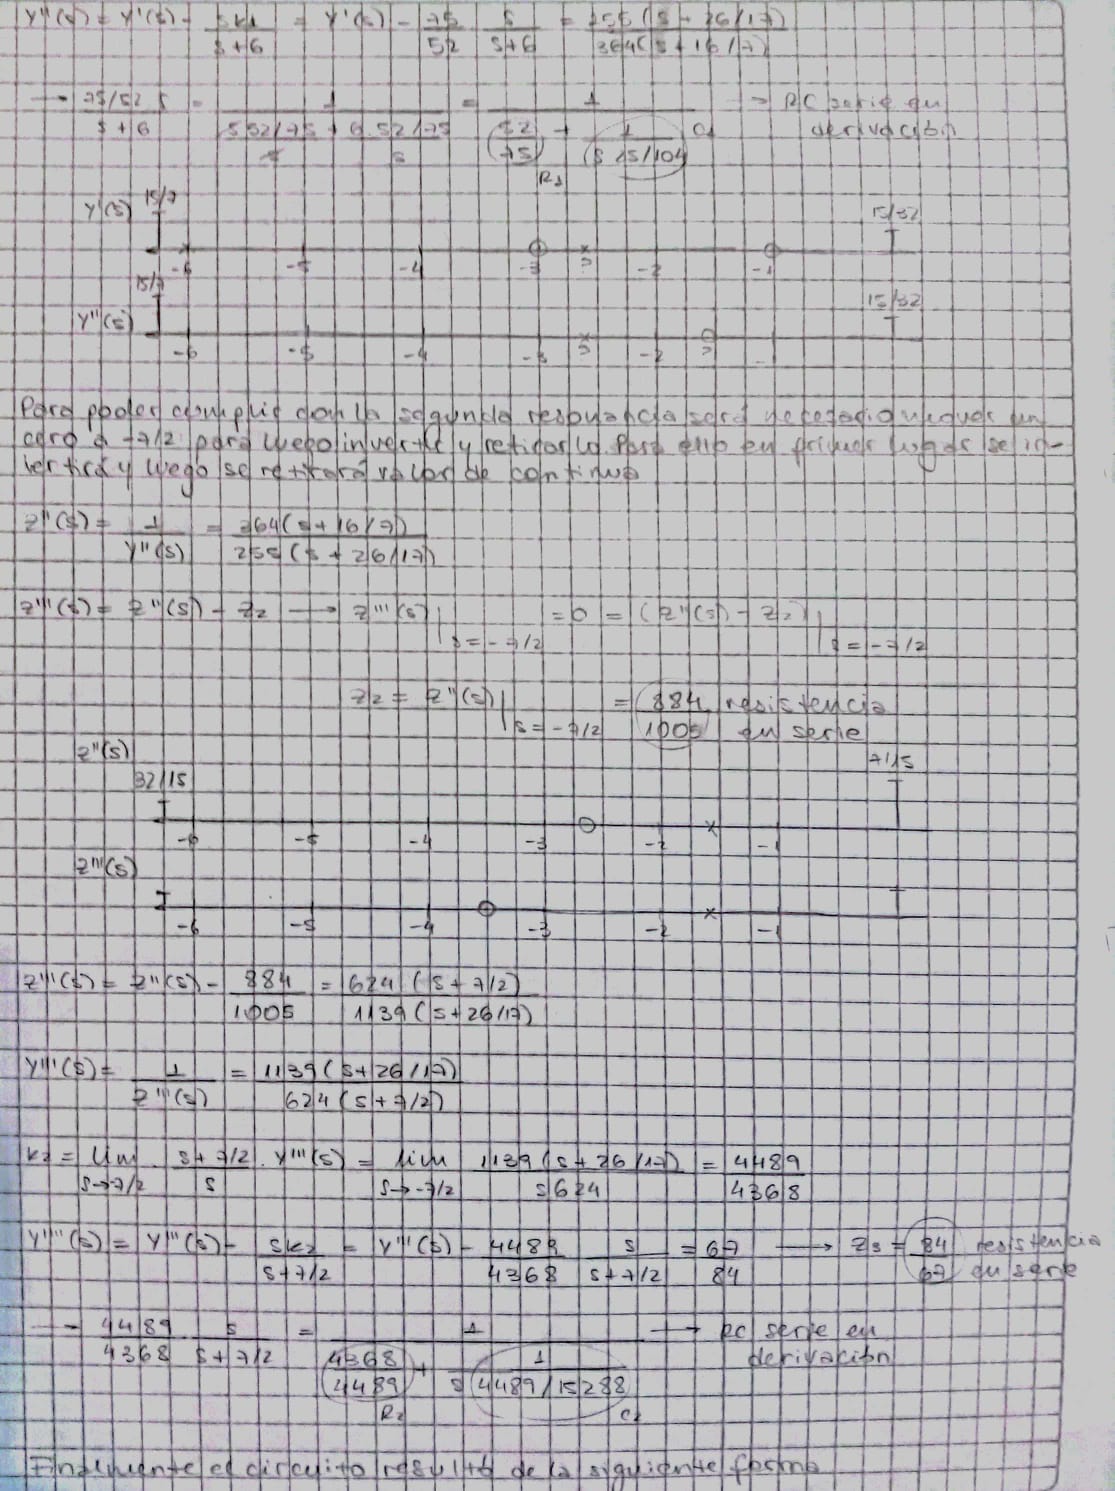 Y''(s) = Y'(s) - sk1/(s+6) = Y'(s) - 75/52 s/(s+6) = 255(s+26/17)/364(s+16/7)
→ 75/52 s/(s+6) = 1/(s52/75/s + 6.52/75/s) = 1/((52/75) + 1/(s 75/104)) → RC serie en
derivación
R1 C1
Y'(s) 15/7 15/32
-6 -5 -4 -3 -2 -1
Y''(s) 15/7 15/32
-6 -5 -4 -3 -2 -1
Para poder cumplir con la segunda resonancia será necesario mover un
cero a -7/2 para luego invertir y retirarlo. Para ello en primer lugar se in-
vertirá y luego se retirará valor de continua
Z''(s) = 1/Y''(s) = 364(s+16/7)/255(s+26/17)
Z'''(s) = Z''(s) - Z2 → Z'''(s)|s=-7/2 = 0 = (Z''(s) - Z2)|s=-7/2
Z2 = Z''(s)|s=-7/2 = 884/1005 resistencia
en serie
Z''(s) 32/15 7/15
-6 -5 -4 -3 -2 -1
Z'''(s)
-6 -5 -4 -3 -2 -1
Z'''(s) = Z''(s) - 884/1005 = 624(s+7/2)/1139(s+26/17)
Y'''(s) = 1/Z'''(s) = 1139(s+26/17)/624(s+7/2)
k2 = lim s→-7/2 (s+7/2)/s . Y'''(s) = lim s→-7/2 1139(s+26/17)/s624 = 4489/4368
Y''''(s) = Y'''(s) - sk2/(s+7/2) = Y'''(s) - 4489/4368 s/(s+7/2) = 67/84 → Z3 = 84/67 resistencia
en serie
→ 4489/4368 s/(s+7/2) = 1/(4368/4489 + 1/(s 4489/15288)) → RC serie en
derivación
R2 C2
Finalmente el circuito resultó de la siguiente forma